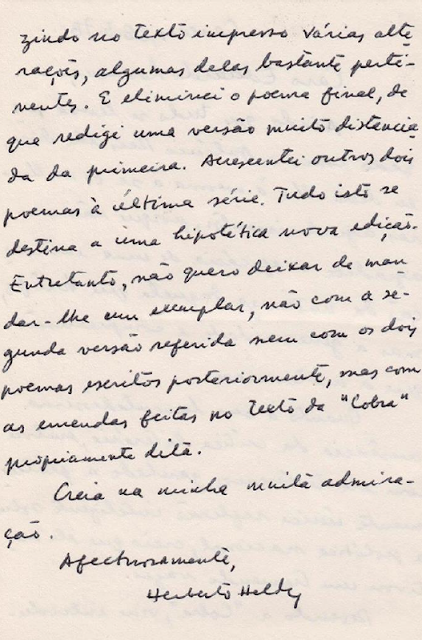 zindo no texto impresso várias alte
rações, algumas delas bastante perti-
nentes. E eliminei o poema final, de
que redigi uma versão muito distancia
da da primeira. Acrescentei outros dois
poemas à última série. Tudo isto se
destina a uma hipotética nova edição.
Entretanto, não quero deixar de man
dar-lhe um exemplar, não com a se-
gunda versão referida nem com os dois
poemas escritos posteriormente, mas com
as emendas feitas no texto da "Cobra"
propriamente dita.
Creia na minha muita admira-
ção.
Afectuosamente,
Herberto Helder